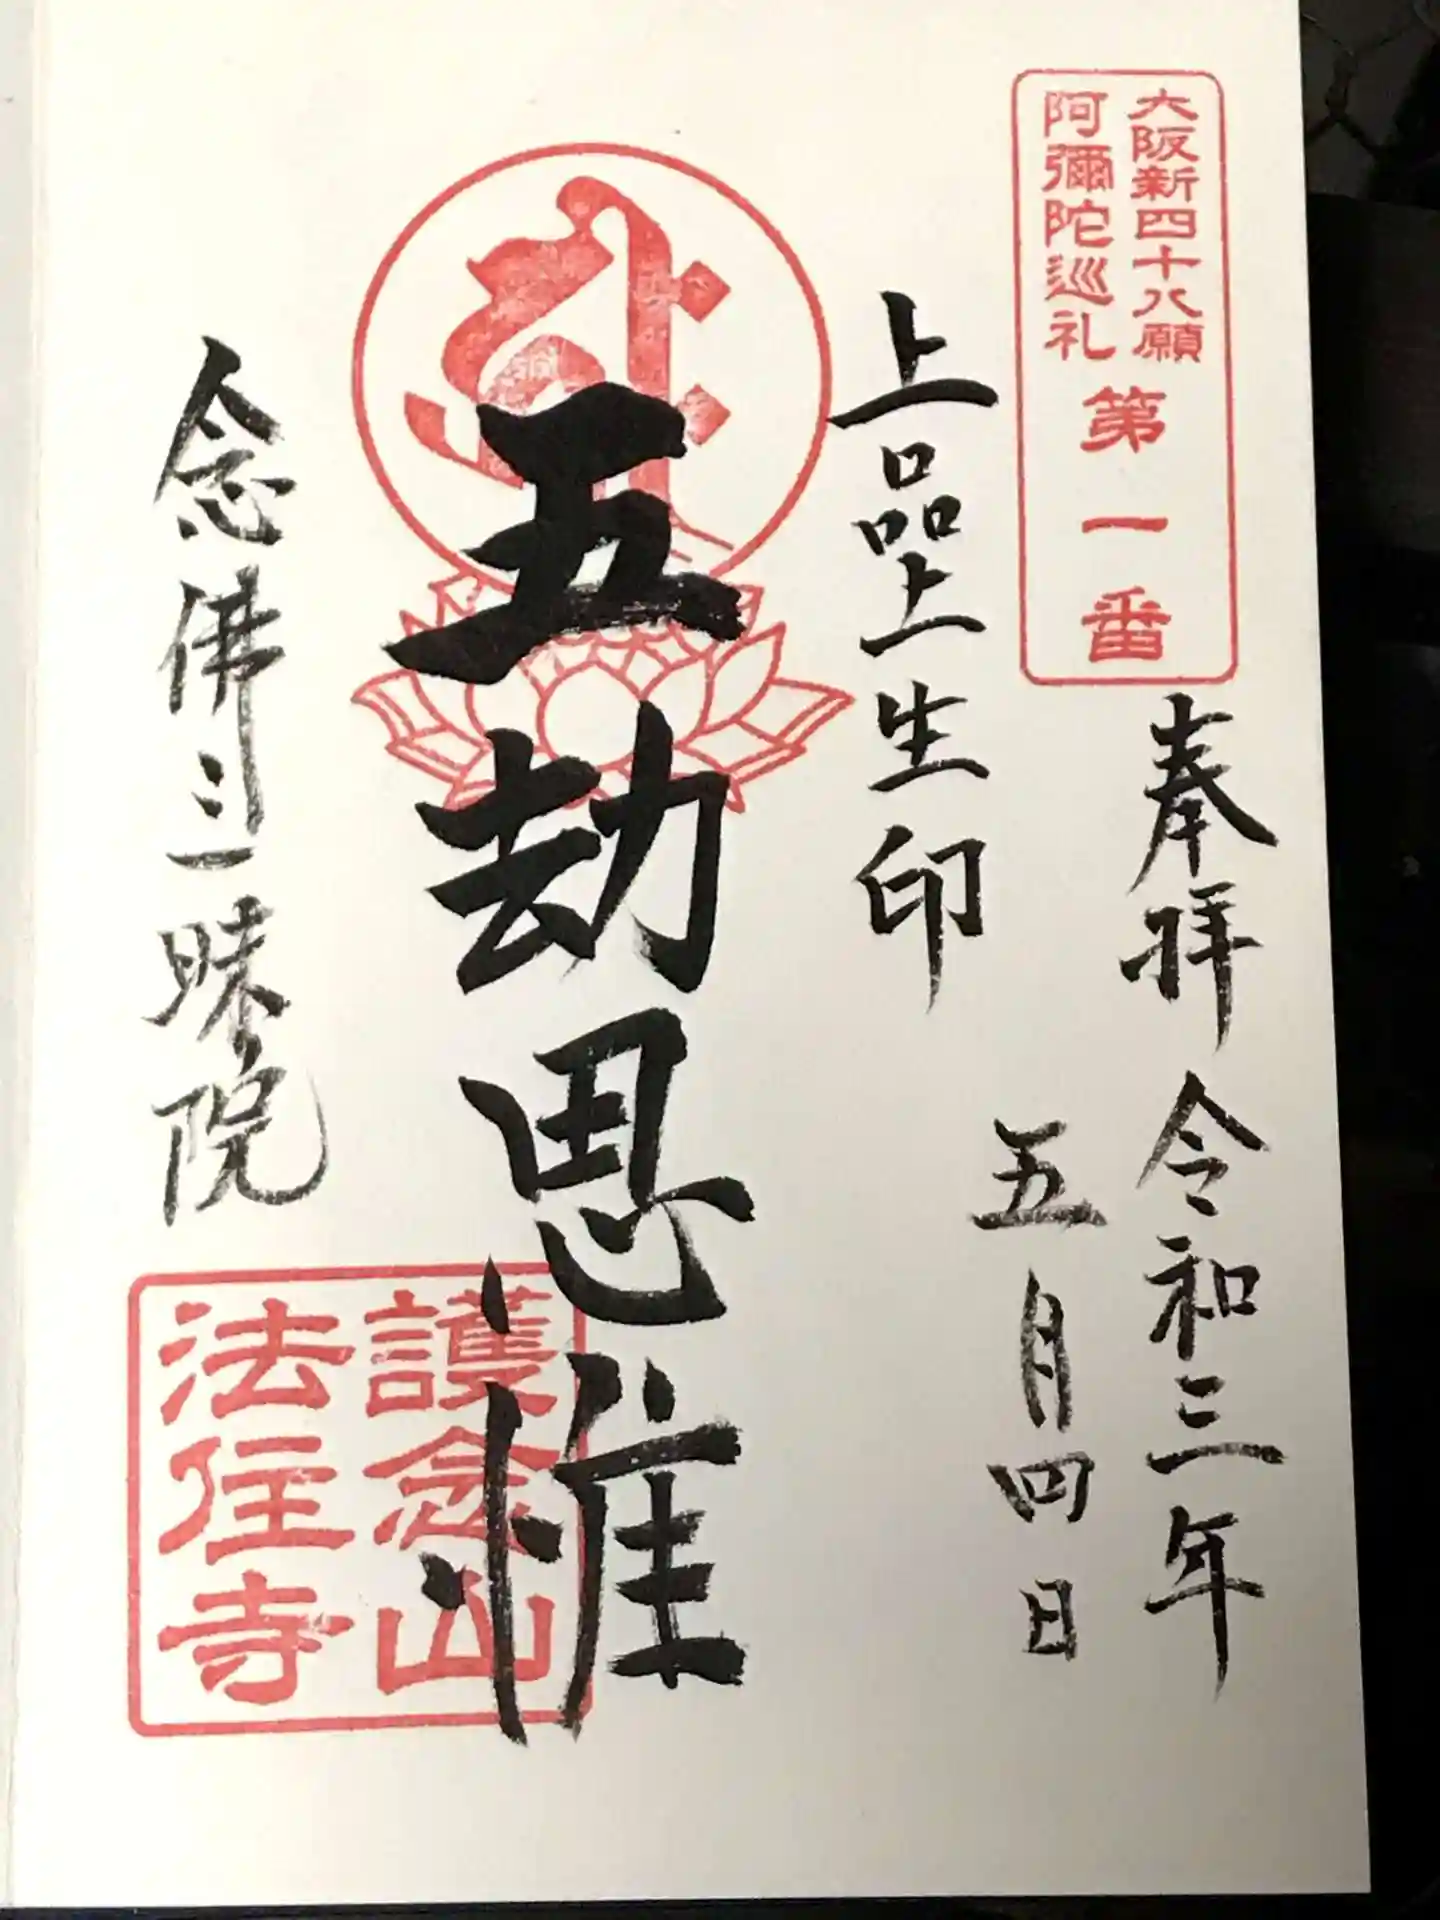 大阪新四十八願
阿彌陀巡礼
第一番
奉拝 令和三年
五月四日
上品上生印
五劫思惟
念佛三昧院
護念山
法住寺